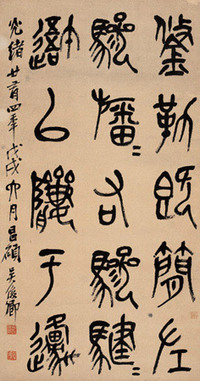 鋚勒既簡左
驂旛〻右驂騝〻
䢕以隮于邍
光緒廿有四年戊戌月昌碩吳俊卿